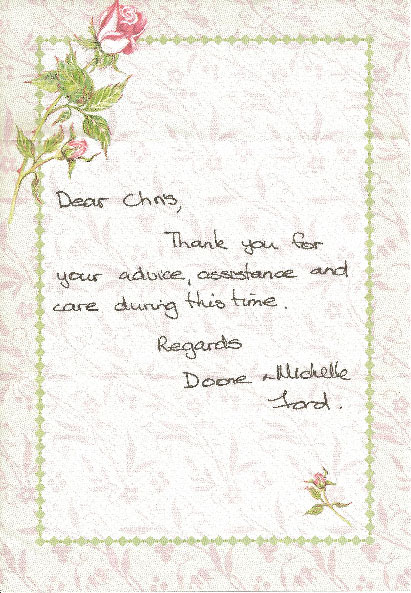 Dear Chris,
Thank you for
your advice, assistance and
care during this time.
Regards
Doone & Michelle
Ford.